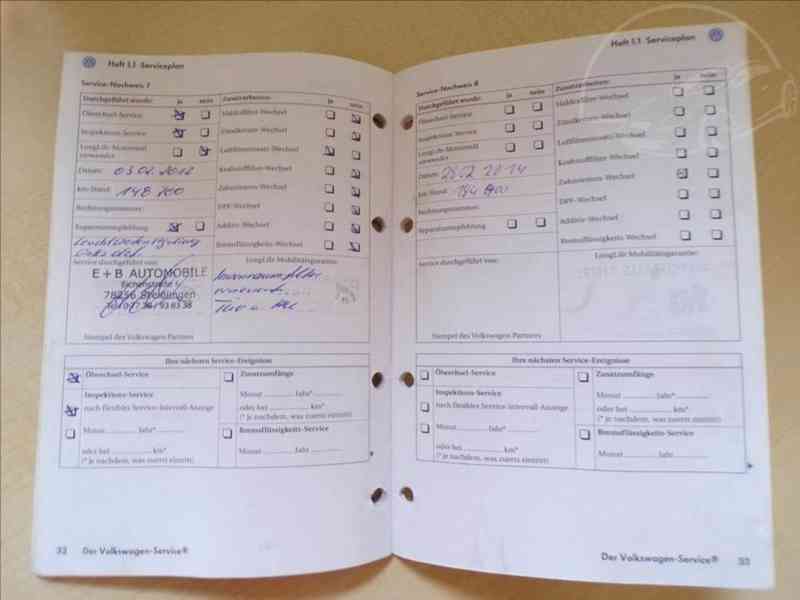 Heft 1.1 Serviceplan
Service-Nachweis 7
Durchgeführt wurde: ja nein
Ölwechsel-Service
Inspektions-Service
LongLife-Motoröl
verwendet
Datum: 03.02.2012
km-Stand: 148 700
Rechnungsnummer:
Reparaturempfehlung
defekt
Service durchgeführt von:
E+B AUTOMOBILE
Stempel des Volkswagen Partners
Zusatzarbeiten: ja nein
Haldexfilter-Wechsel
Zündkerzen-Wechsel
Luftfiltereinsatz-Wechsel
Kraftstofffilter-Wechsel
Zahnriemen-Wechsel
DPF-Wechsel
Additiv-Wechsel
Bremsflüssigkeits-Wechsel
LongLife Mobilitätsgarantie:
Innenraumfilter
Ihre nächsten Service-Ereignisse
Ölwechsel-Service
Inspektions-Service
nach flexibler Service-Intervall-Anzeige
Monat Jahr*
oder bei km*
(* je nachdem, was zuerst eintritt)
Zusatzumfänge
Monat Jahr*
oder bei km*
(* je nachdem, was zuerst eintritt)
Bremsflüssigkeits-Service
Monat Jahr
32 Der Volkswagen-Service®
Heft 1.1 Serviceplan
Service-Nachweis 8
Durchgeführt wurde: ja nein
Ölwechsel-Service
Inspektions-Service
LongLife-Motoröl
verwendet
Datum: 28.02 2014
km-Stand: 184
Rechnungsnummer:
Reparaturempfehlung
Service durchgeführt von:
Stempel des Volkswagen Partners
Zusatzarbeiten: ja nein
Haldexfilter-Wechsel
Zündkerzen-Wechsel
Luftfiltereinsatz-Wechsel
Kraftstofffilter-Wechsel
Zahnriemen-Wechsel
DPF-Wechsel
Additiv-Wechsel
Bremsflüssigkeits-Wechsel
LongLife Mobilitätsgarantie:
Ihre nächsten Service-Ereignisse
Ölwechsel-Service
Inspektions-Service
nach flexibler Service-Intervall-Anzeige
Monat Jahr*
oder bei km*
(* je nachdem, was zuerst eintritt)
Zusatzumfänge
Monat Jahr*
oder bei km*
(* je nachdem, was zuerst eintritt)
Bremsflüssigkeits-Service
Monat Jahr
Der Volkswagen-Service® 33